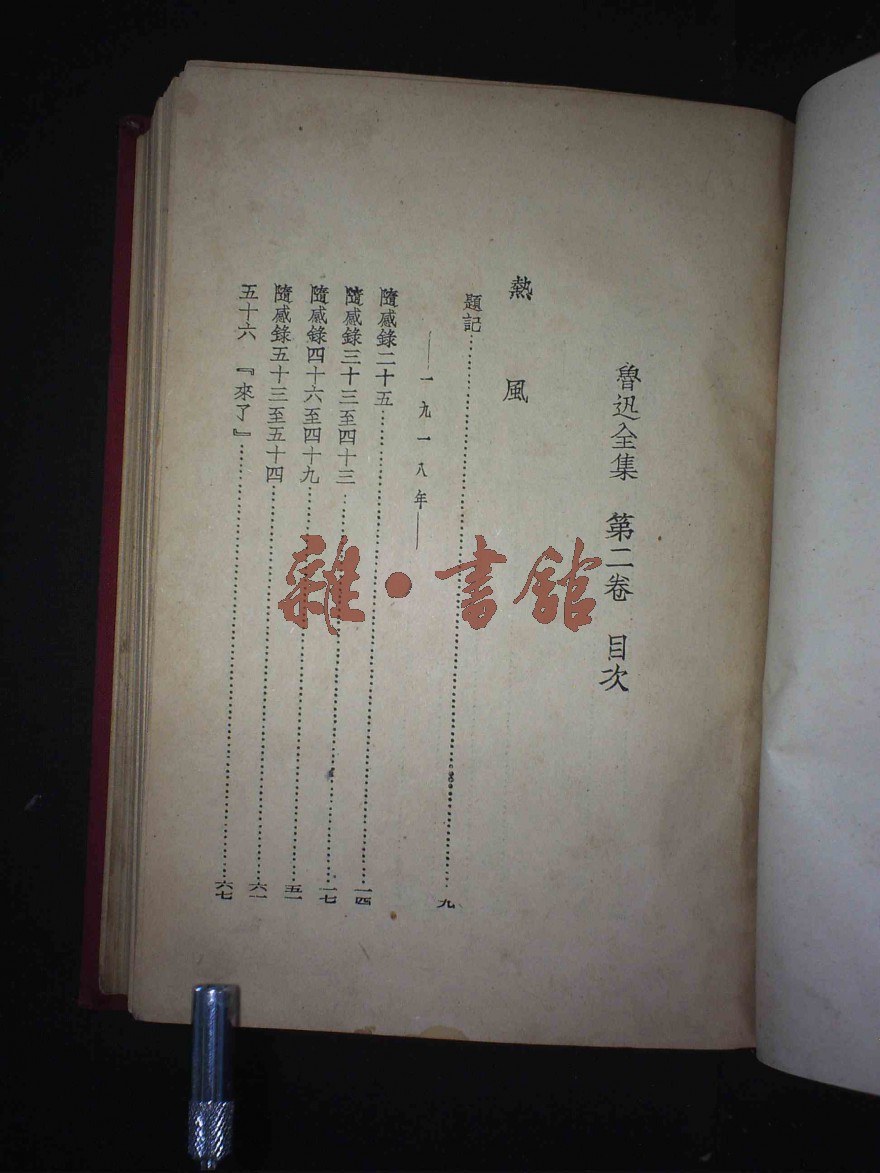 魯迅全集 第二卷 目次
熱風
題記……九
——一九一八年——
隨感錄二十五……一四
隨感錄三十三至四十三……一七
隨感錄四十六至四十九……五一
隨感錄五十三至五十四……六一
五十六 『來了』……六七
雜·書館